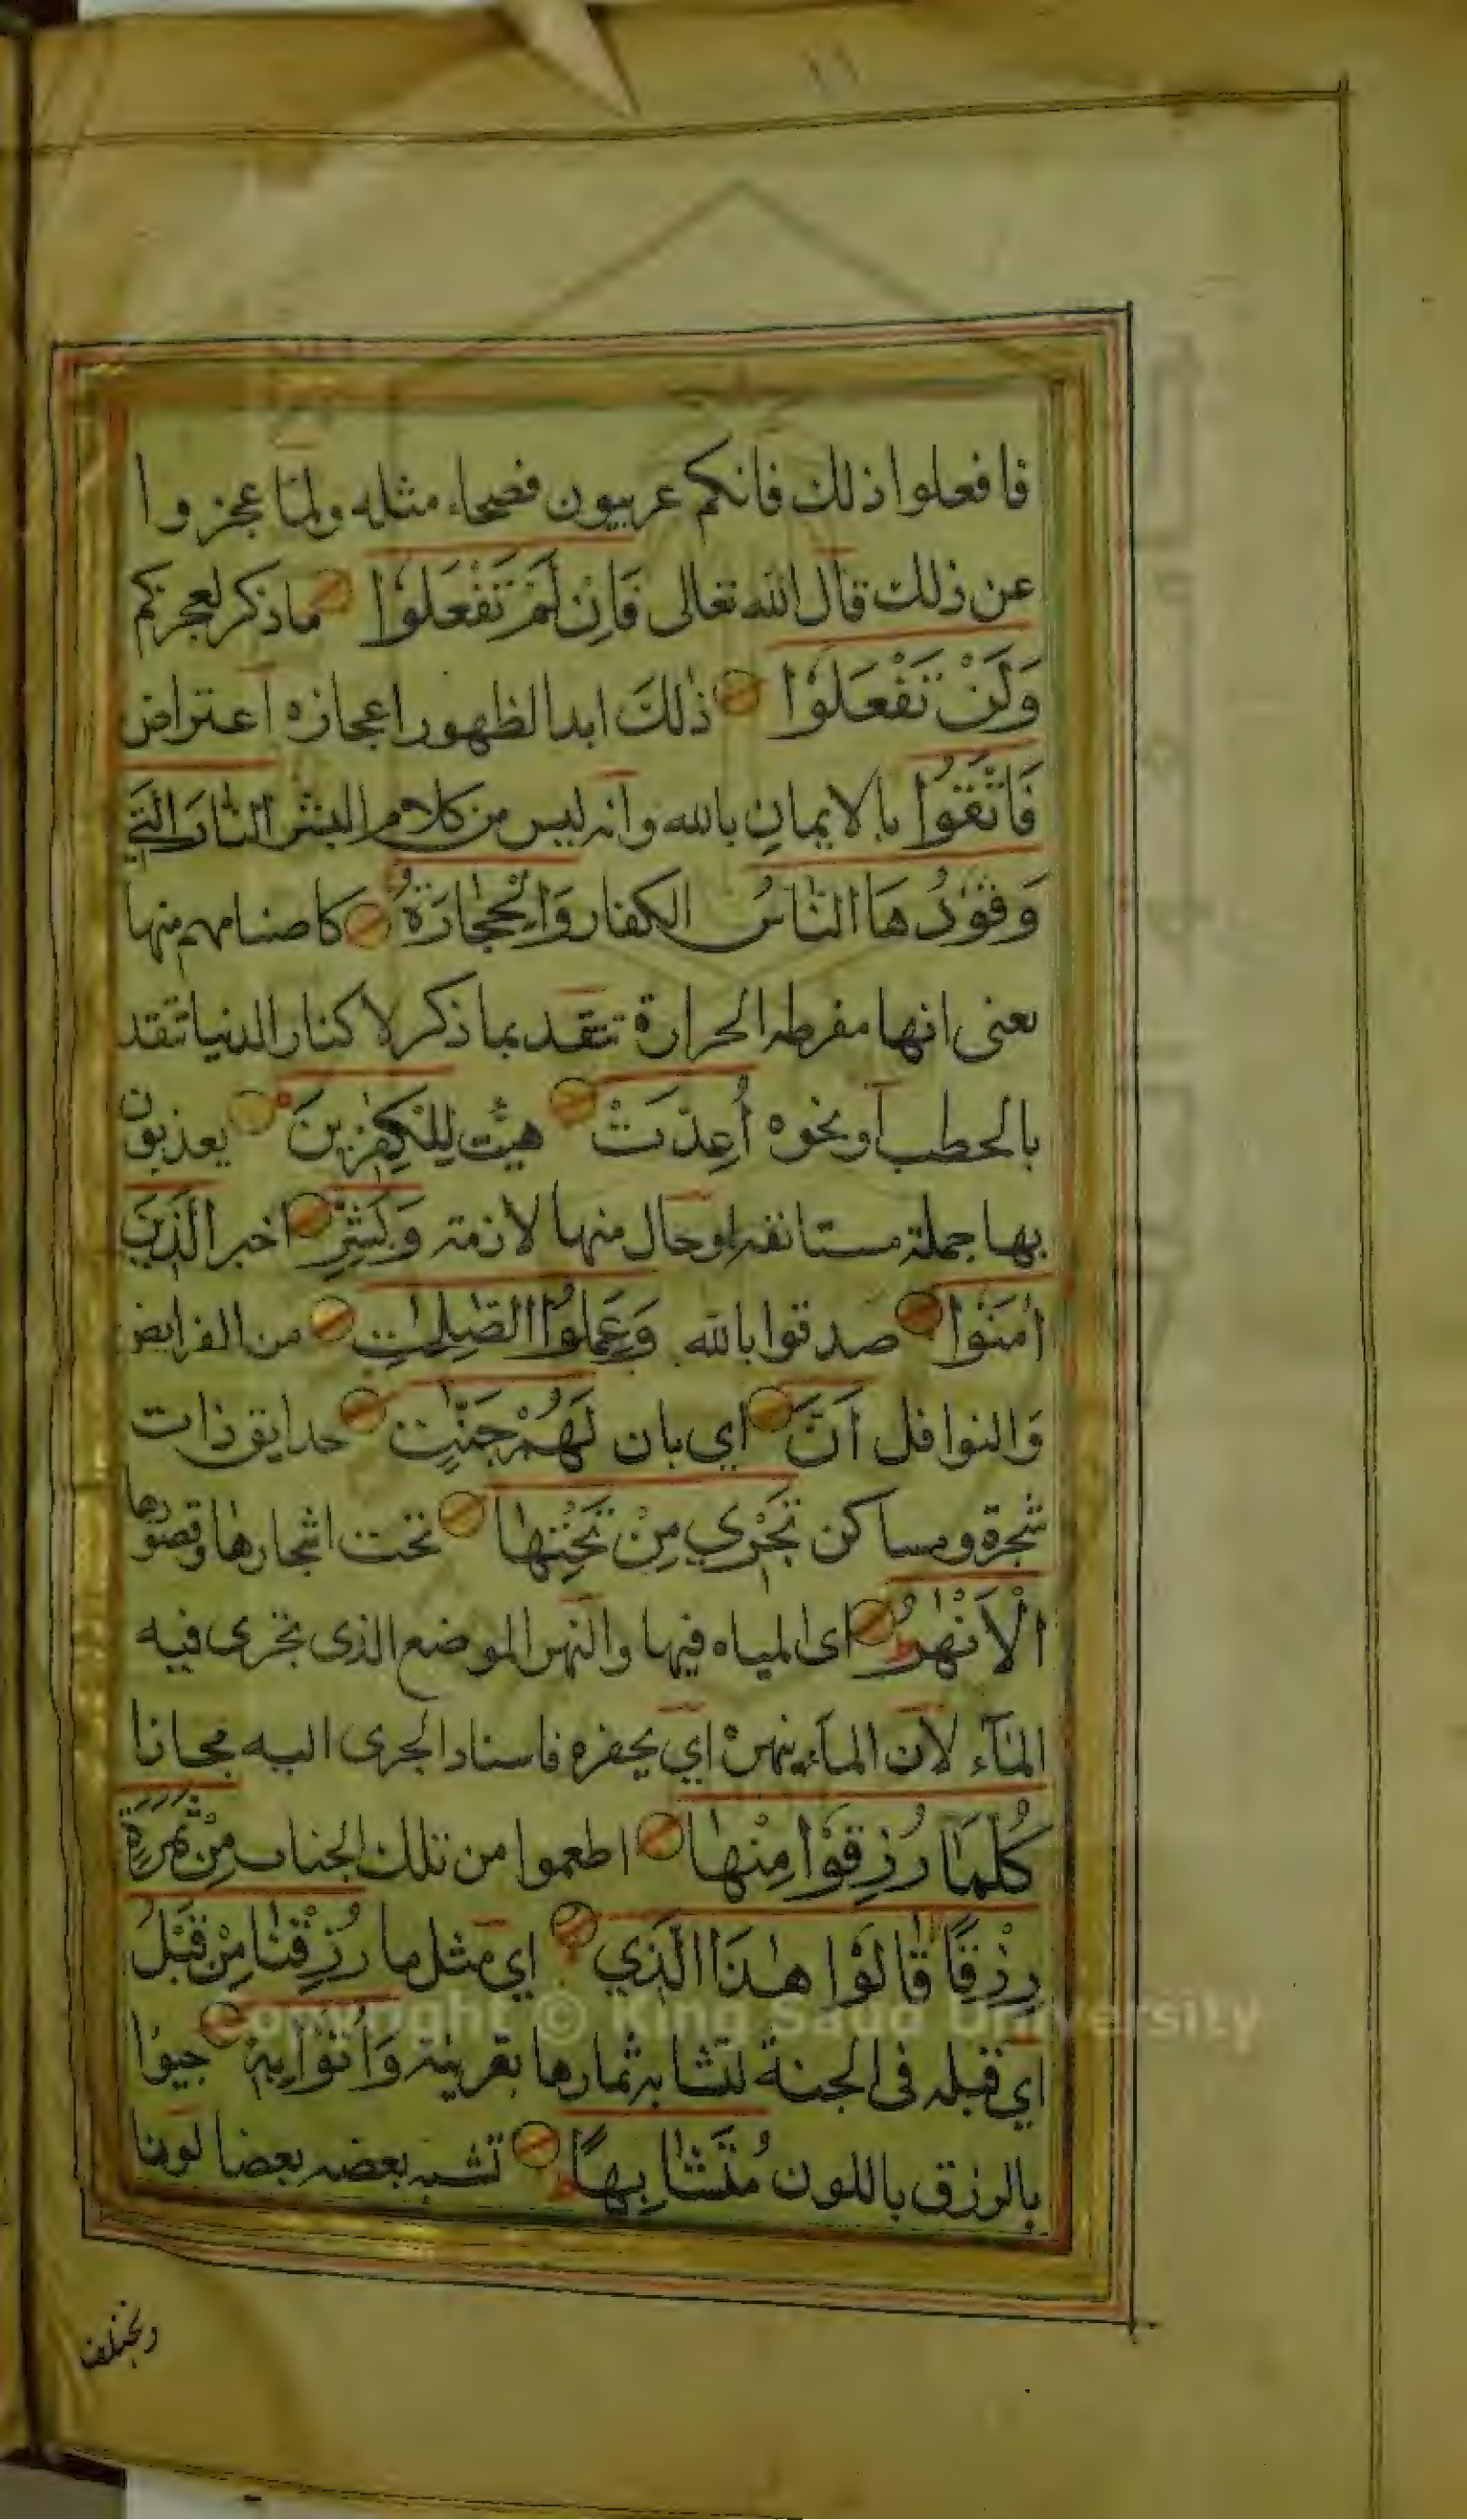 ١١
فافعلوا ذلك فانكم عربيون فصحاء مثله ولما عجزوا
عن ذلك قال الله تعالى فَاِنْ لَمْ تَفْعَلُوْا ما ذكر لعجزكم
وَلَنْ تَفْعَلُوْا ذٰلكَ ابدا لظهور اعجازه اعتراض
فَاتَّقُوا بالايمانِ بالله وانه ليس من كلام البشر النَّارَ الَّتِي
وَقُوْدُهَا النَّاسُ الكفار وَالْحِجَارَةُ كاصنامهم منها
يعنى انها مفرطه الحرارة تتقد بما ذكر لا كنار الدنيا تتقد
بالحطب أو نحوه أُعِدَّتْ هيئت لِلْكٰفِرِينَ يعذبون
بها جملة مستانفه او حال منها لازمة وَبَشِّرِ اخبر الَّذِيْنَ
اٰمَنُوْا صدقوا بالله وَعَمِلُوا الصّٰلِحٰتِ من الفرايض
وَالنوافل اَنَّ اي بان لَهُمْ جَنّٰتٍ حدايق ذات
شجرة ومساكن تَجْرِي مِنْ تَحْتِهَا تحت اشجارها وقصورها
الْاَنْهٰرُ اى المياه فيها والنهر الموضع الذى تجرى فيه
المآء لان المآء ينهره اي يحفره فاسناد الجرى اليه مجازا
كُلَّمَا رُزِقُوْا مِنْهَا اطعموا من تلك الجنات مِنْ ثَمَرَةٍ
رِزْقًا قَالُوْا هٰذَا الَّذِي اي مثل ما رُزِقْنَا مِنْ قَبْلُ
اي قبله فى الجنة لتشابه ثمارها بقرينة وَاُتُوْا بِهٖ جيؤا
بالرزق باللون مُتَشَابِهًا تشبه بعضه بعضا لونا
ويختلف
Copyright © King Saud University